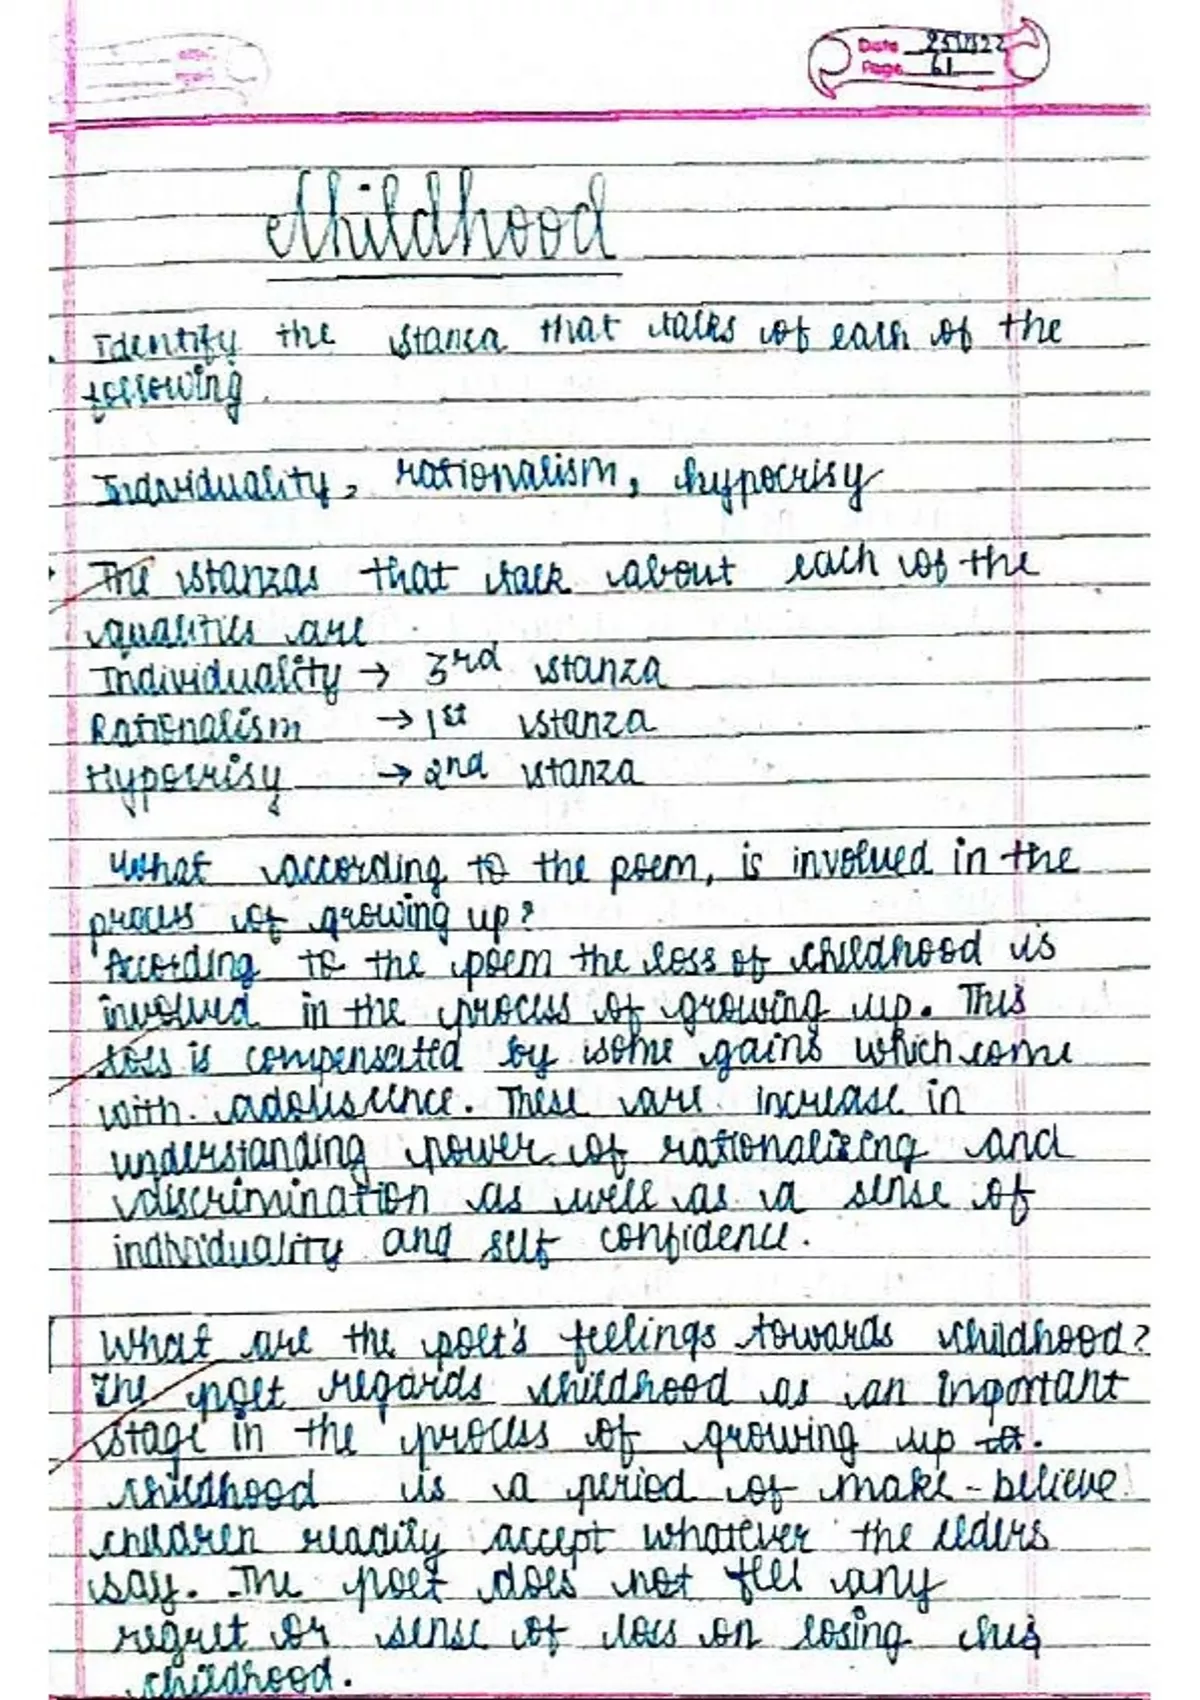 Date 25
Page 61
Childhood
Identify the stanza that talks of each of the
following.
Individuality, rationalism, hypocrisy
The stanzas that talk about each of the
qualities are
Individuality → 3rd stanza
Rationalism → 1st stanza
Hypocrisy → 2nd stanza
What according to the poem, is involved in the
process of growing up?
According to the poem the loss of childhood is
involved in the process of growing up. This
loss is compensated by some gains which come
with adolescence. These are increase in
understanding power of rationalizing and
discrimination as well as a sense of
individuality and self confidence.
What are the poet's feelings towards childhood?
The poet regards childhood as an important
stage in the process of growing up.
childhood is a period of make-believe
children readily accept whatever the elders
say. The poet does not feel any
regret or sense of loss on losing his
childhood.